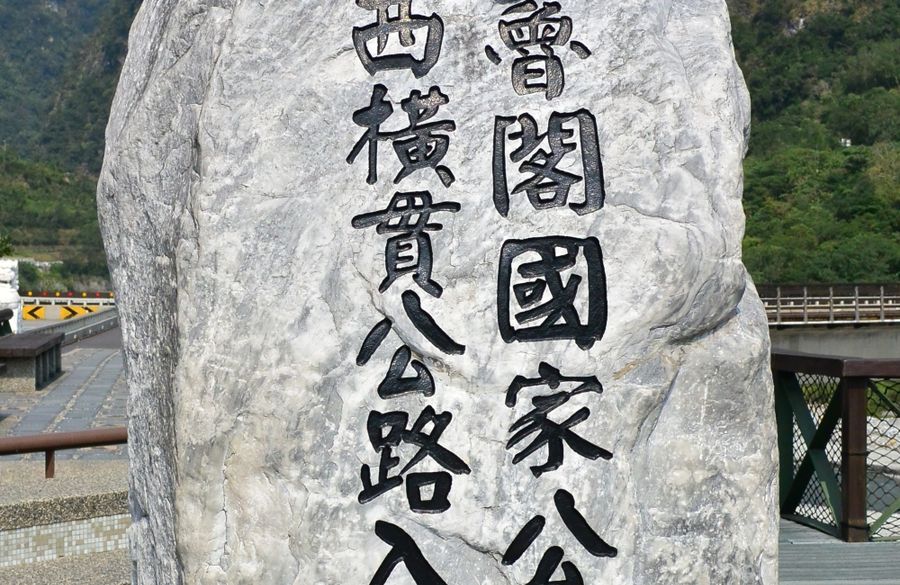 魯閣國家公
西橫貫公路入